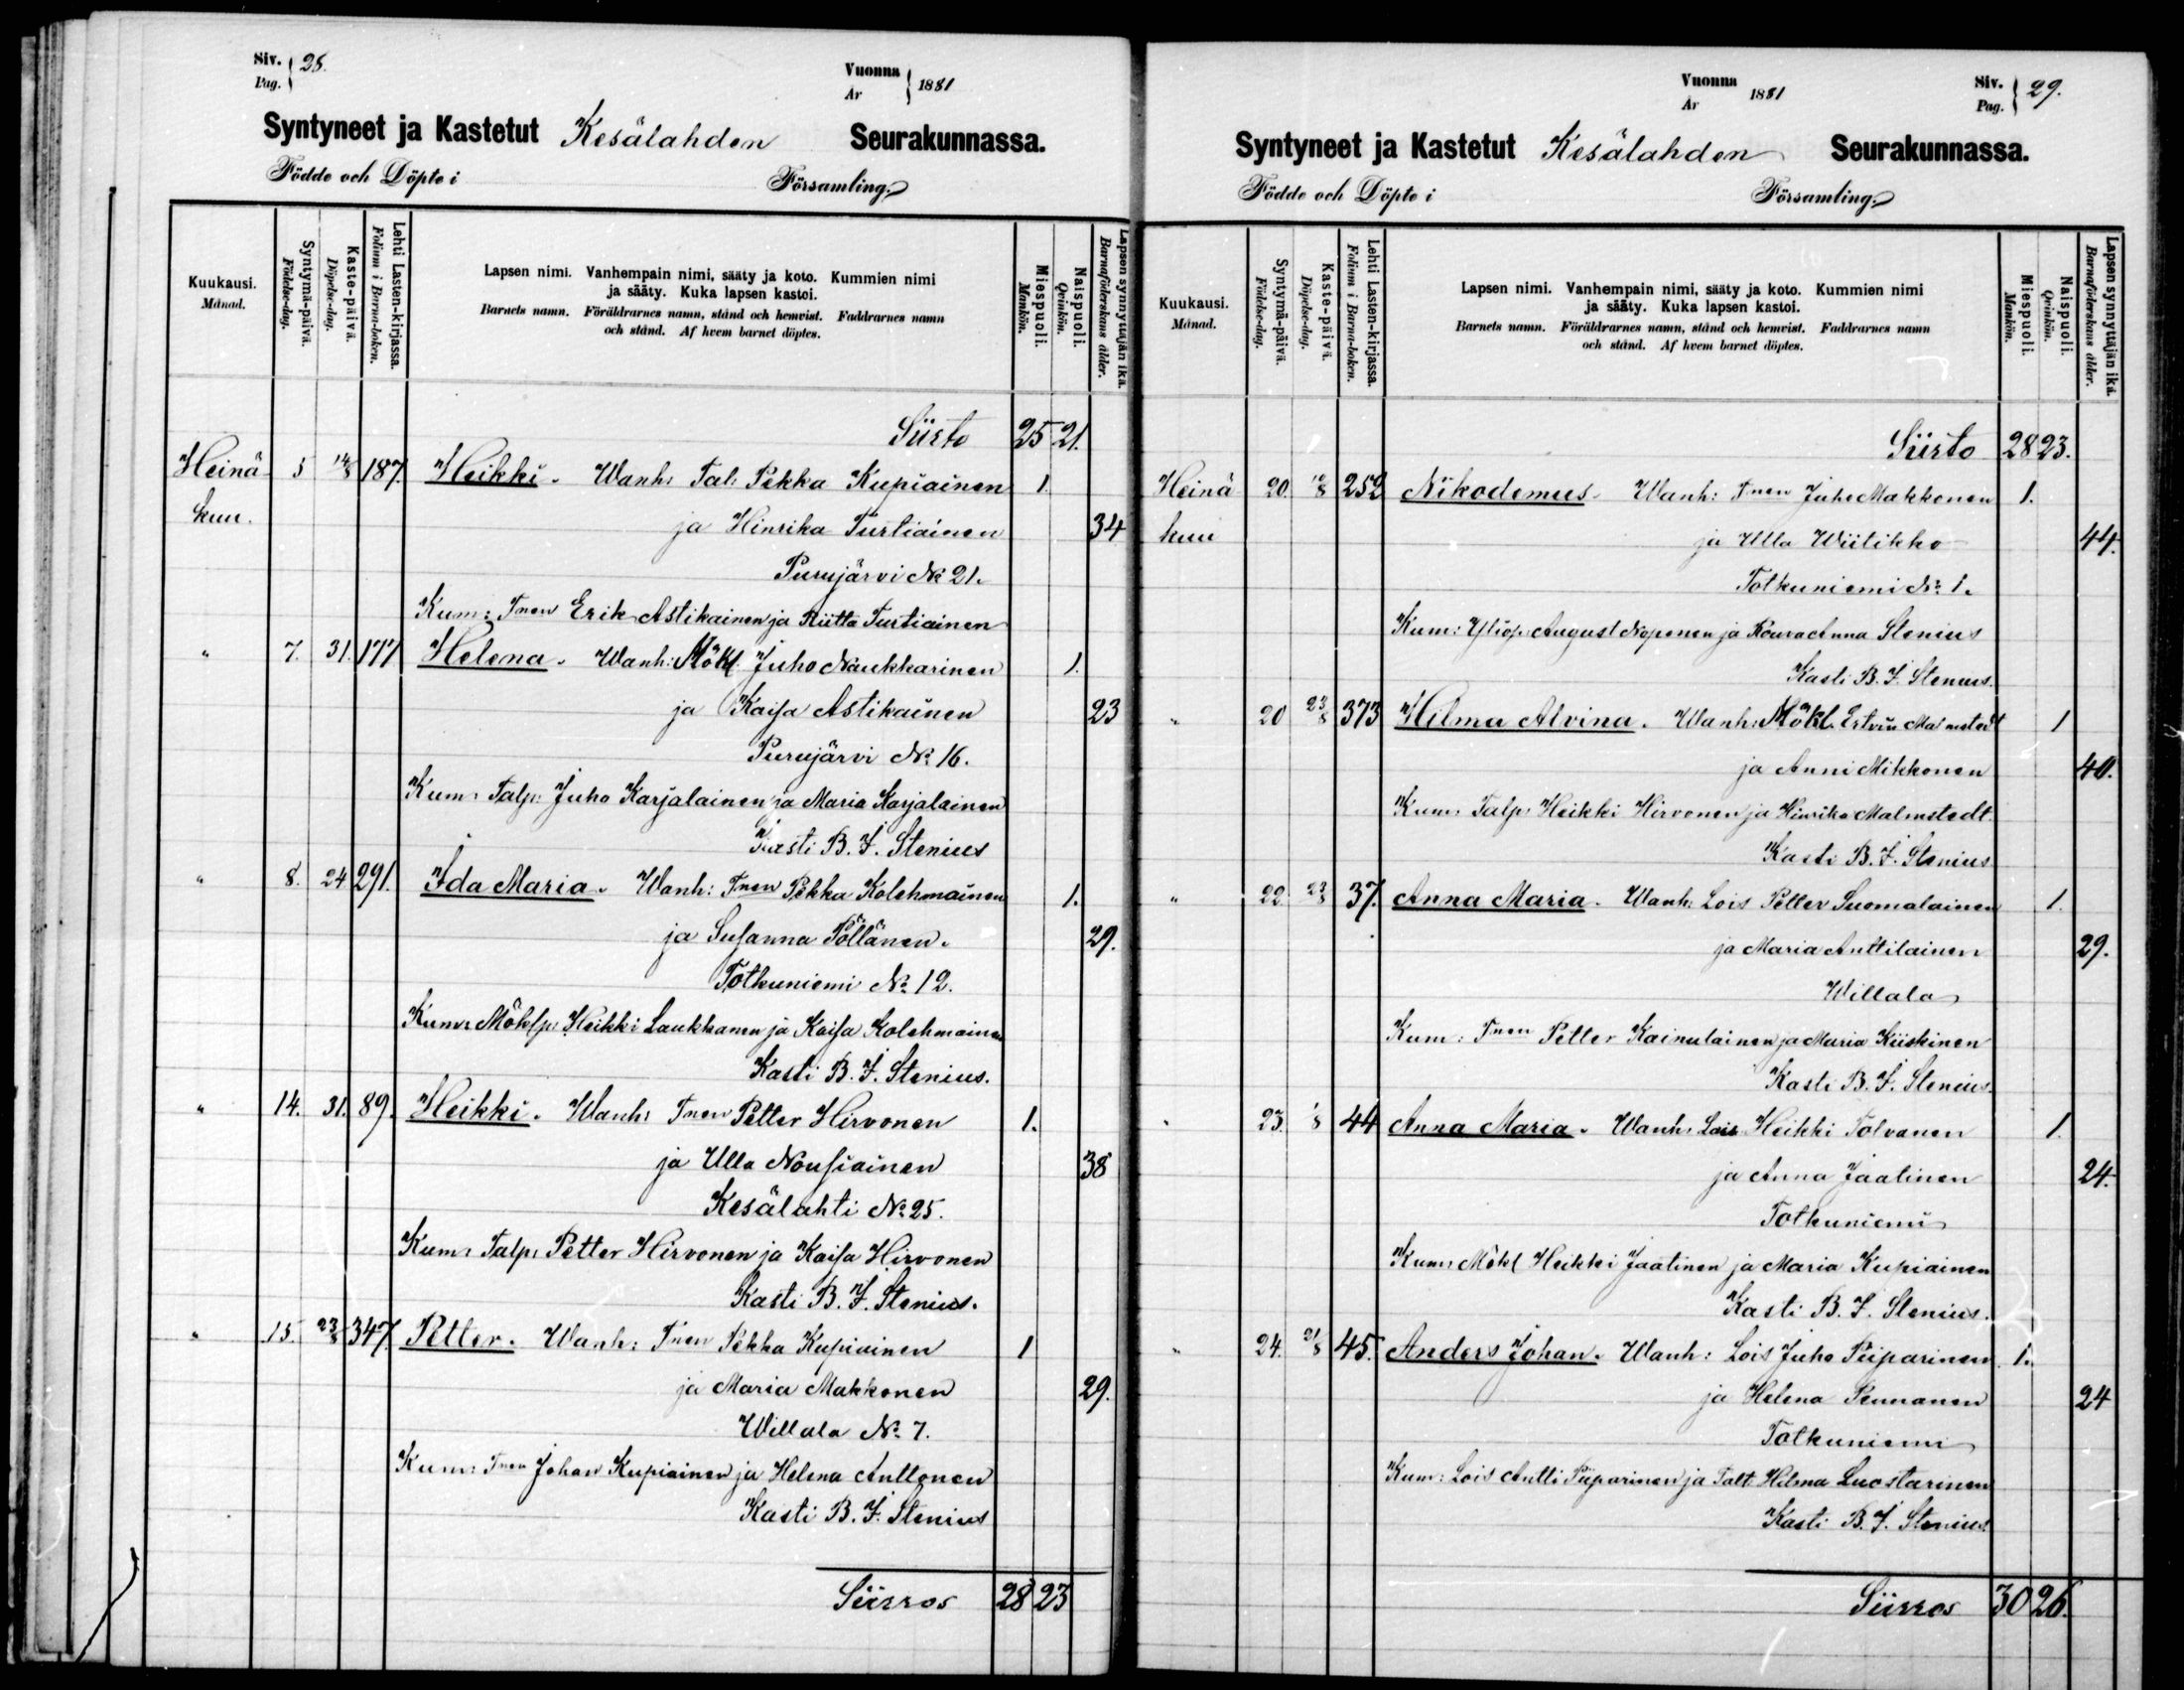 Siv. Pag. } 28.
Vuonna År } 1881
Syntyneet ja Kastetut Kesälahden Seurakunnassa.
Födde och Döpte i Församling.
Kuukausi. Månad.
Syntymä-päivä. Födelse-dag.
Kaste-päivä. Döpelse-dag.
Lehti Lasten-kirjassa. Folium i Barna-boken.
Lapsen nimi. Vanhempain nimi, sääty ja koto. Kummien nimi
ja sääty. Kuka lapsen kastoi.
Barnets namn. Föräldrarnes namn, stånd och hemvist. Faddrarnes namn
och stånd. Af hvem barnet döptes.
Miespuoli. Mankön.
Naispuoli. Qvinkön.
Lapsen synnyttäjän ikä. Barnaföderskans ålder.
Siirto 25 21.
Heinä 5 14/8 187 Heikki. Wanh: Tal: Pekka Kupiainen 1.
kuu. ja Hinrika Turtiainen 34
Purujärvi No 21.
Kum: Tnen Erik Astikainen ja Riitta Turtiainen
" 7. 31. 177 Helena. Wanh: Mökl Juho Naukkarinen 1.
ja Kaisa Astikainen 23
Purujärvi No 16.
Kum: Talp: Juho Karjalainen ja Maria Karjalainen
Kasti B. J. Stenius
" 8. 24 291. Ida Maria. Wanh: Tnen Pekka Kolehmainen 1.
ja Susanna Töllänen. 29.
Totkuniemi No 12.
Kum: Möklp: Heikki Laukkanen ja Kaisa Kolehmainen
Kasti B. J. Stenius.
" 14. 31. 89. Heikki. Wanh: Tnen Petter Hirvonen 1.
ja Ulla Nousiainen 38
Kesälahti No 25.
Kum: Talp: Petter Hirvonen ja Kaisa Hirvonen
Kasti B. J. Stenius.
" 15. 23/8 347. Petter. Wanh: Tnen Pekka Kupiainen 1
ja Maria Makkonen 29.
Willala No 7.
Kum: Tnen Johan Kupiainen ja Helena Anttonen
Kasti B. J. Stenius
Siirros 28 23
Vuonna År 1881
Siv. Pag. } 29.
Syntyneet ja Kastetut Kesälahden Seurakunnassa.
Födde och Döpte i Församling.
Kuukausi. Månad.
Syntymä-päivä. Födelse-dag.
Kaste-päivä. Döpelse-dag.
Lehti Lasten-kirjassa. Folium i Barna-boken.
Lapsen nimi. Vanhempain nimi, sääty ja koto. Kummien nimi
ja sääty. Kuka lapsen kastoi.
Barnets namn. Föräldrarnes namn, stånd och hemvist. Faddrarnes namn
och stånd. Af hvem barnet döptes.
Miespuoli. Mankön.
Naispuoli. Qvinkön.
Lapsen synnyttäjän ikä. Barnaföderskans ålder.
Siirto 28 23.
Heinä 20. 252 Nikodemus. Wanh: Tnen Juho Makkonen 1.
kuu ja Ulla Wiitikko 44.
Totkuniemi No 1.
Kum: Yliop: August Noponen ja Rouva Anna Stenius
Kasti B. J. Stenius.
" 20 23/8 373 Hilma Alvina. Wanh: Mökl. Malmstedt 1
ja Anni Mikkonen 40.
Kum: Talp: Heikki Hirvonen ja Hinrika Malmstedt.
Kasti B. J. Stenius
" 22. 23/8 37. Anna Maria. Wanh: Lois Petter Suomalainen 1.
ja Maria Anttilainen 29.
Willala
Kum: Tnen Petter Kainulainen ja Maria Kiiskinen
Kasti B. J. Stenius.
" 23. 1/8 44 Anna Maria. Wanh: Lois Heikki Tolvanen 1.
ja Anna Jaatinen 24.
Totkuniemi
Kum: Mökl Heikki Jaatinen ja Maria Kupiainen
Kasti B. J. Stenius.
" 24. 21/8 45. Anders Johan. Wanh: Lois Juho Piiparinen 1.
ja Helena Pennanen 24
Totkuniemi
Kum: Lois Antti Piiparinen ja Talt Hilma Luostarinen
Kasti B. J. Stenius
Siirros 30 26.